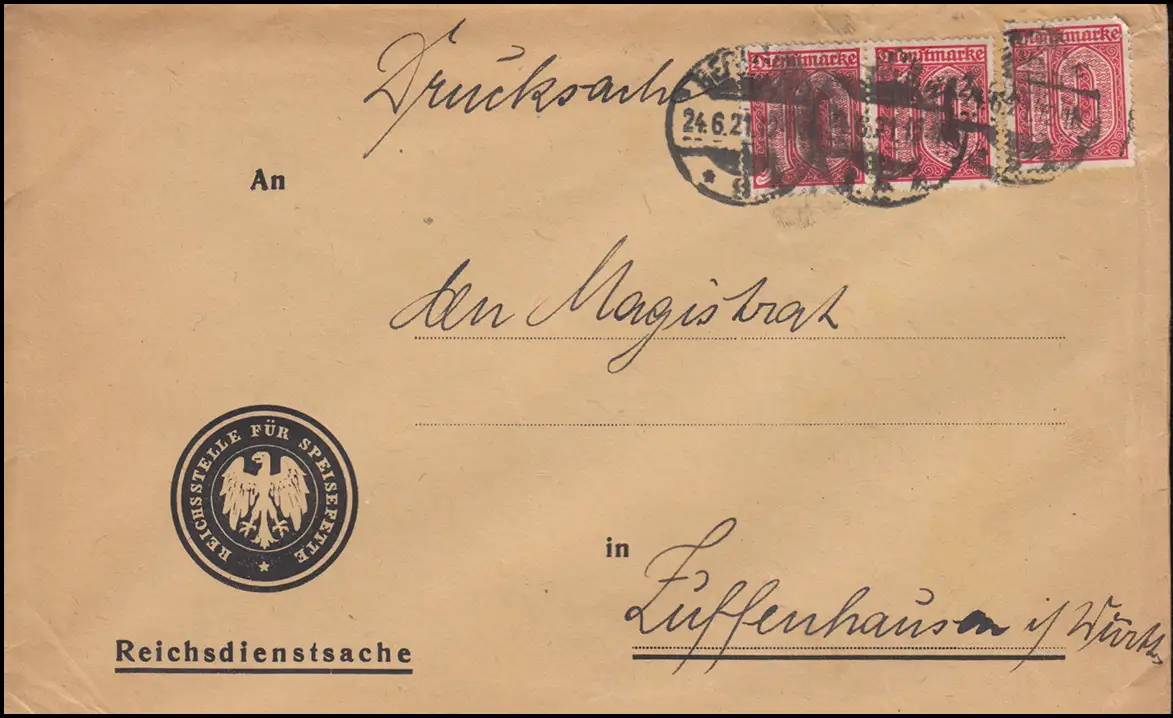 Drucksache
Dienstmarke
Dienstmarke
24.6.21
An
den Magistrat
REICHSSTELLE FÜR SPEISEFETTE
in
Zuffenhausen i/ Württ.
Reichsdienstsache